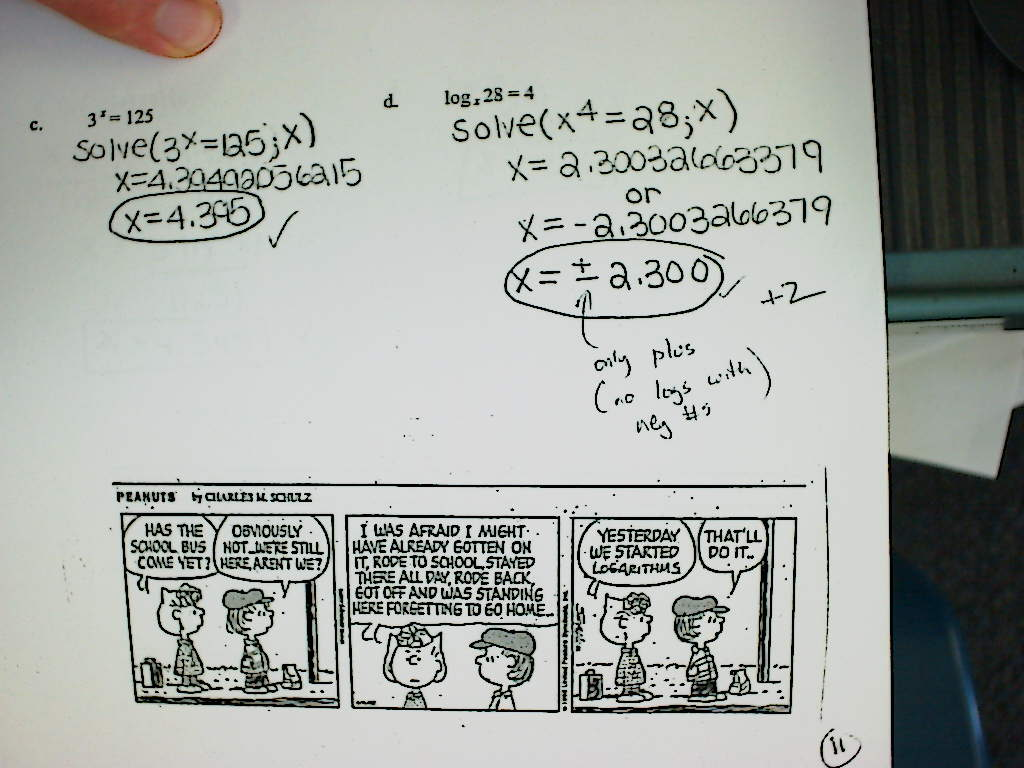 c. 3^x = 125
solve(3^x=125;x)
x=4.39492056215
x=4.395
d. log_x 28 = 4
solve(x^4=28;x)
x=2.300326663379
or
x=-2.3003266379
x=±2.300
+2
only plus
(no logs with)
neg #s
PEANUTS by CHARLES M. SCHULZ
HAS THE
SCHOOL BUS
COME YET?
OBVIOUSLY
NOT..WE'RE STILL
HERE, AREN'T WE?
I WAS AFRAID I MIGHT
HAVE ALREADY GOTTEN ON
IT, RODE TO SCHOOL, STAYED
THERE ALL DAY, RODE BACK,
GOT OFF AND WAS STANDING
HERE FORGETTING TO GO HOME..
YESTERDAY
WE STARTED
LOGARITHMS
THAT'LL
DO IT..
11